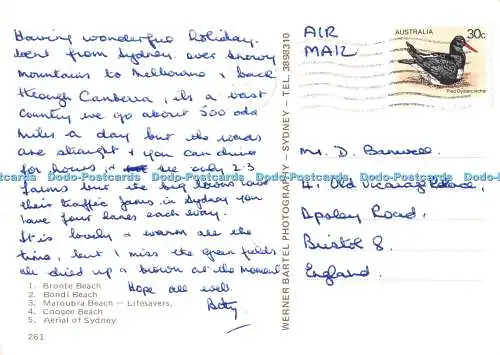 Having wonderful holiday.
Went from Sydney over Snowy
Mountains to Melbourne & back
through Canberra, its a vast
country we go about 500 odd
miles a day but the roads
are straight & you can drive
for hours & see only 2-3
farms but the big towns have
their traffic jams in Sydney you
have four lanes each way.
It is lovely & warm all the
time, but I miss the green fields
all dried up & brown at the moment
Hope all well.
Betty
1. Bronte Beach
2. Bondi Beach
3. Maroubra Beach — Lifesavers.
4. Coogee Beach
5. Aerial of Sydney
261
WERNER BARTEL PHOTOGRAPHY — SYDNEY — TEL. 3898310
AIR
MAIL
AUSTRALIA
30c
Pied Oystercatcher
Mr. D. Banwell
41 Old Vicarage Place,
Apsley Road,
Bristol 8
England.
Dodo-Postcards Dodo-Postcards Dodo-Postcards Dodo-Postcards Dodo-Postcards Dodo-Postcards